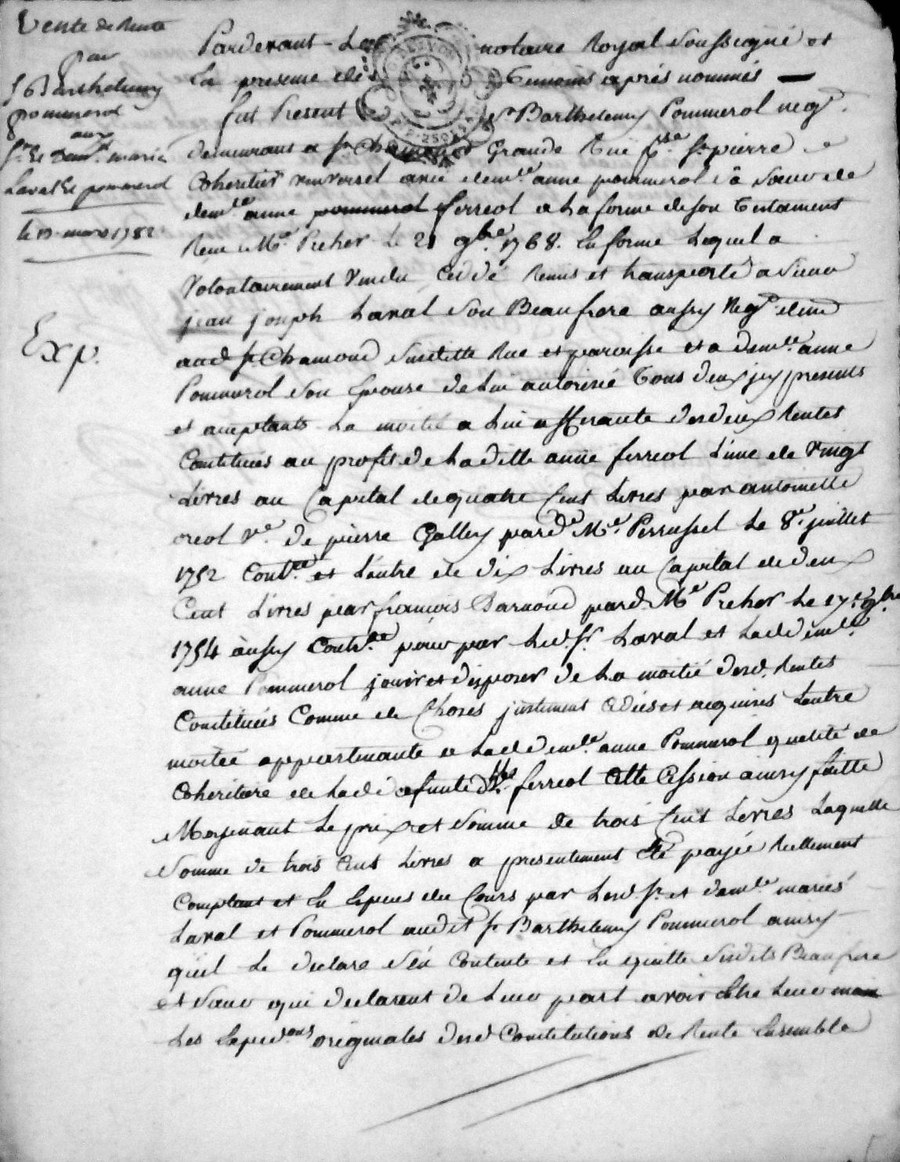 Vente de Rente
par
Sr Barthelemy
pommerol
aux
Sr. Et demlle. mariés
Laval Et pommerol
le 13. mars 1782
Exp.
Pardevant Le notaire Royal Soussigné et
En presence des temoins après nommés
fut Present Sr Barthelemy Pommerol negt.
demeurant a St. Chamond Grande Rue psse. St. pierre
Coheritier universel avec demlle. anne pommerol Sa Sœur de
demlle. anne pommerol ferreol a La forme de son testament
Reçu Me. Preher Le 21 9bre. 1768. En forme Lequel a
Volontairement Vendu Ceddé Remis et transporté a Sieur
jean joseph Laval Son Beaufrere aussy Negt. demt
aud. St. Chamond Susditte Rue et paroisse et a demlle. anne
Pommerol Son Epouse de Lui autorisée tous deux icy presents
et acceptants La moitié a Lui afferante des deux Rentes
Constituées au profit de Laditte anne ferreol L'une de Vingt
Livres au Capital de quatre Cent Livres par antoinette
oreol Ve. de pierre Galley pardt. Me. Perrussel Le 8e. juillet
1752 Contlée. et L'autre de dix Livres au Capital de deux
Cent Livres par francois Darnoud pard. Me. Preher Le 17e. 9bre
1754 aussy Contlée. pour par Led. Sr. Laval et Lad. demlle.
anne Pommerol jouir et disposer de La moitié desd. Rentes
Constituées Comme de Choses justement Cedées et acquises L'autre
moitiée appartenante a Lad. demlle. anne Pommerol qualité de
Coheritiere de Lad. defunte dlle. ferreol Cette Cession ainsy faitte
Moyenant Le prix et Somme de trois Cent Livres Laquelle
Somme de trois Cent Livres a presentement Eté payée Reellement
Comptant et En Especes du Cours par Lesd. Sr. et demlle. mariés
Laval et Pommerol audit Sr. Barthelemy Pommerol ainsy
quil Le declare S'en Contente et En quitte Susdits Beaufrere
et Sœur qui declarent de Leur part avoir Entre Leurs mains
Les Expedons originales desd. Constitutions de Rente Ensemble